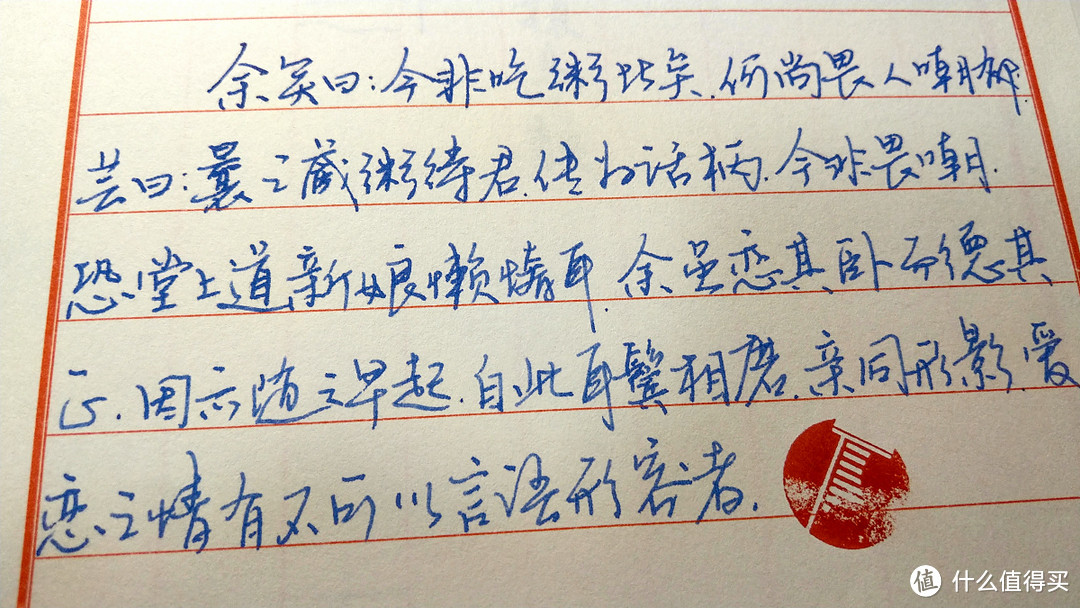 余笑曰:今非吃粥比矣,何尚畏人嘲耶.
芸曰:曩之藏粥待君,传为话柄.今非畏嘲.
恐堂上道新娘懒惰耳.余虽恋其卧而德其
正.因亦随之早起.自此耳鬓相磨.亲同形影.爱
恋之情有不可以言语形容者.
值 什么值得买